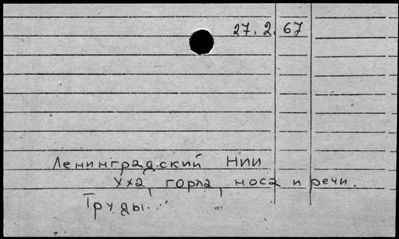 27.2.67
Ленинградский НИИ
уха, горла, носа и речи.
Труды...